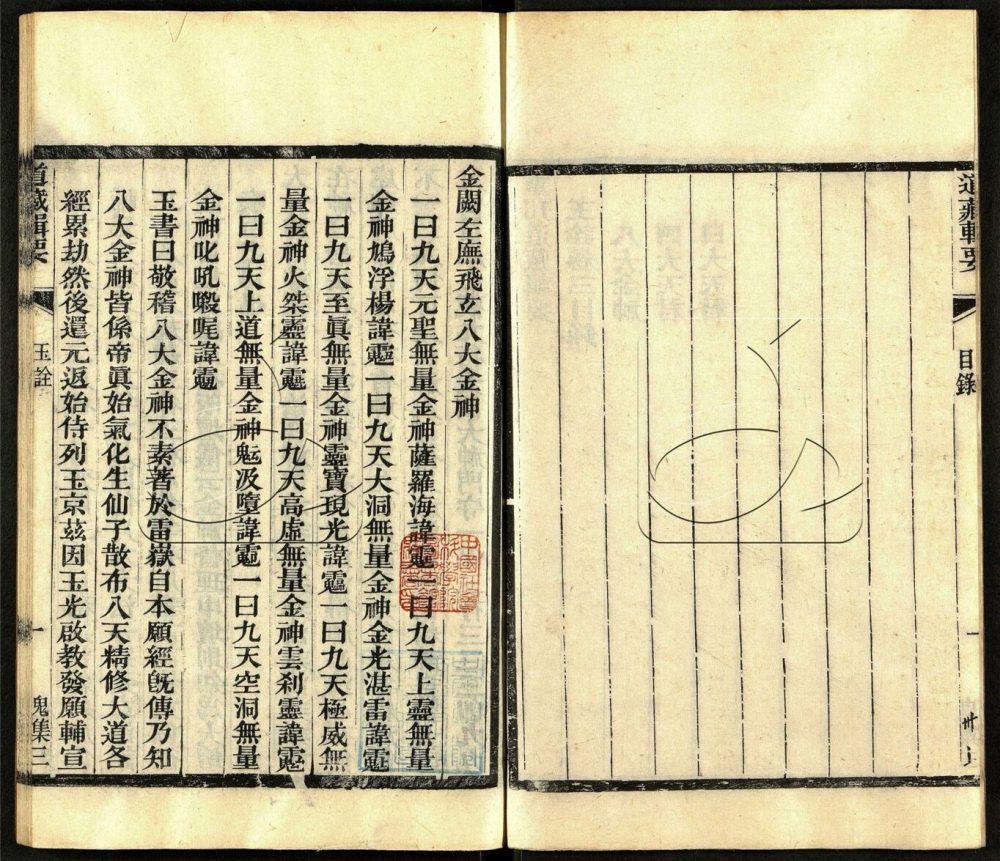 道藏輯要
目錄
金闕左廡飛玄八大金神
一曰九天元聖無量金神薩羅海諱 一曰九天上靈無量
金神鳩浮楊諱 一曰九天大洞無量金神金光湛雷諱
一曰九天至眞無量金神靈寶現光諱 一曰九天極威無
量金神火桀靈諱 一曰九天高虛無量金神雲刹靈諱
一曰九天上道無量金神 汲墮諱 一曰九天空洞無量
金神叱吼 㖞諱
玉書曰敬稽八大金神不素著於雷嶽自本願經旣傳乃知
八大金神皆係帝眞始氣化生仙子散布八天精修大道各
經累劫然後還元返始侍列玉京茲因玉光啟教發願輔宣
道藏輯要
玉詮
一
鬼集三